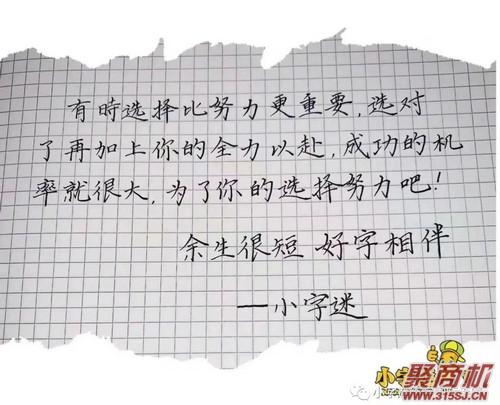 有時选择比努力更重要,选对
了再加上你的全力以赴,成功的机
率就很大,为了你的选择努力吧!
余生很短 好字相伴
——小字迷
小字
聚商机
WWW.315SJ.COM